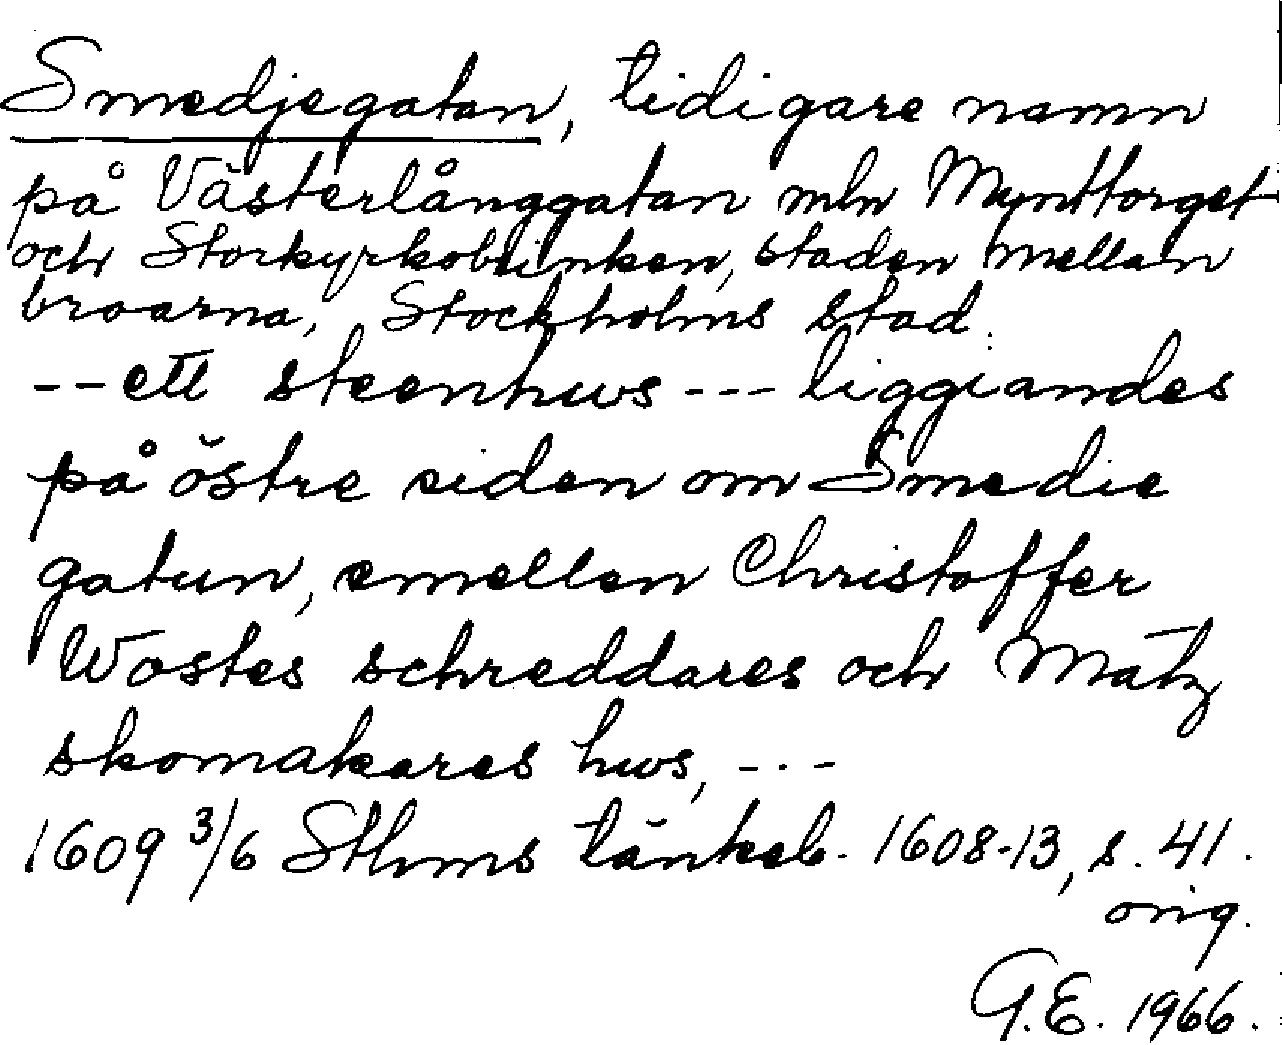 Smedjegatan, tidigare namn
på Västerlånggatan mln Mynttorget
och Storkyrkobrinken, staden mellan
broarna, Stockholms stad.
-- ett steenhws --- liggiandes
på östre siden om Smedie
gatun, emellen Christoffer
Wostes schreddares och Matz
skomakares hws, ---
1609 3/6 Sthms tänkeb. 1608-13, s. 41.
orig.
G.E. 1966.